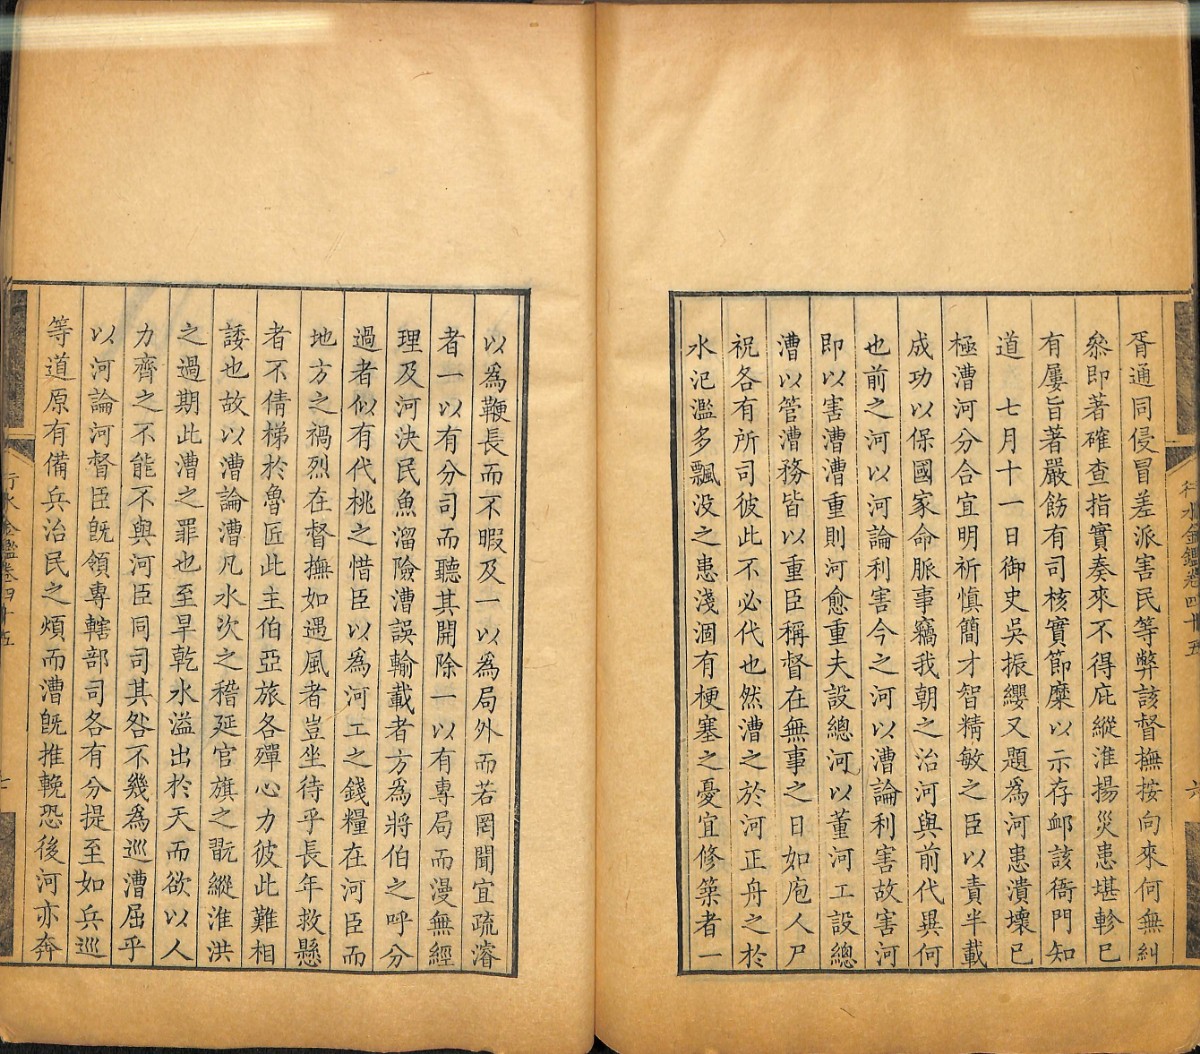 胥通同侵冒差派害民等弊該督撫按向來何無糾
叅即著確查指實奏來不得庇縱淮揚災患堪軫已
有屢旨著嚴飭有司核實節糜以示存邺該衙門知
道　七月十一日御史吳振纓又題為河患潰壞已
極漕河分合宜明祈慎簡才智精敏之臣以責半載
成功以保國家命脈事竊我朝之治河與前代異何
也前之河以河論利害今之河以漕論利害故害河
即以害漕漕重則河愈重夫設總河以董河工設總
漕以管漕務皆以重臣稱督在無事之日如庖人尸
祝各有所司彼此不必代也然漕之於河正舟之於
水氾濫多飄没之患淺涸有梗塞之憂宜修築者一
行水金鑑卷四十五
六
以為鞭長而不暇及一以為局外而若罔聞宜疏濬
者一以有分司而聽其開除一以有專局而漫無經
理及河決民魚溜險漕誤輸載者方為將伯之呼分
過者似有代桃之惜臣以為河工之錢糧在河臣而
地方之禍烈在督撫如遇風者豈坐待乎長年救懸
者不倩梯於魯匠此主伯亞旅各殫心力彼此難相
諉也故以漕論漕凡水次之稽延官旗之翫縱淮洪
之過期此漕之罪也至旱乾水溢出於天而欲以人
力齊之不能不與河臣同司其咎不幾為巡漕屈乎
以河論河督臣旣領專轄部司各有分提至如兵巡
等道原有備兵治民之煩而漕旣推輓恐後河亦奔
行水金鑑卷四十五
七